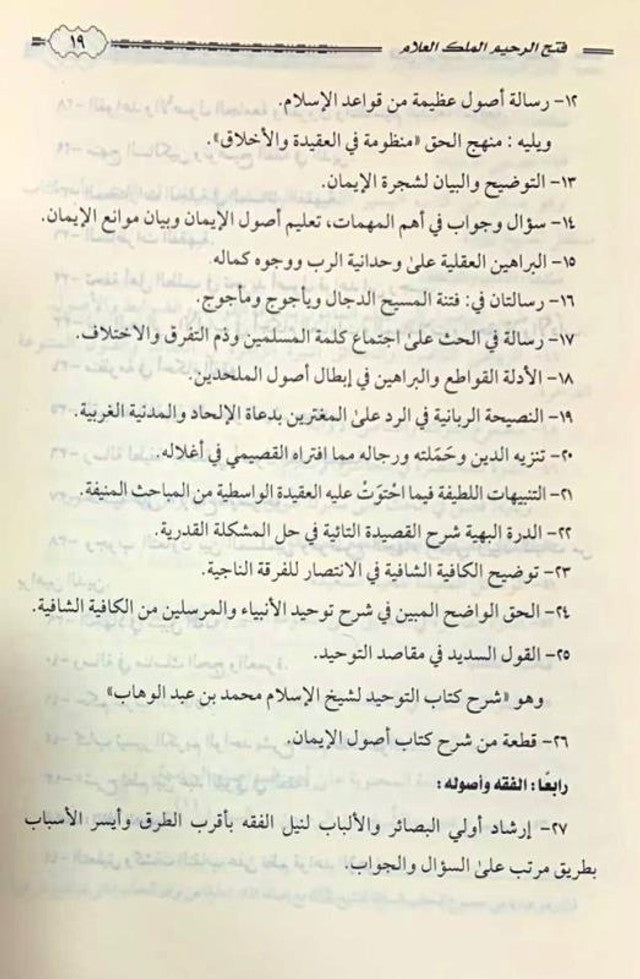 فتح الرحيم الملك العلام
١٩
١٢- رسالة أصول عظيمة من قواعد الإسلام.
ويليه : منهج الحق «منظومة في العقيدة والأخلاق».
١٣- التوضيح والبيان لشجرة الإيمان.
١٤- سؤال وجواب في أهم المهمات، تعليم أصول الإيمان وبيان موانع الإيمان.
١٥- البراهين العقلية علىٰ وحدانية الرب ووجوه كماله.
١٦- رسالتان في: فتنة المسيح الدجال ويأجوج ومأجوج.
١٧- رسالة في الحث علىٰ اجتماع كلمة المسلمين وذم التفرق والاختلاف.
١٨- الأدلة القواطع والبراهين في إبطال أصول الملحدين.
١٩- النصيحة الربانية في الرد علىٰ المغترين بدعاة الإلحاد والمدنية الغربية.
٢٠- تنزيه الدين وحَمَلته ورجاله مما افتراه القصيمي في أغلاله.
٢١- التنبيهات اللطيفة فيما احْتوَتْ عليه العقيدة الواسطية من المباحث المنيفة.
٢٢- الدرة البهية شرح القصيدة التائية في حل المشكلة القدرية.
٢٣- توضيح الكافية الشافية في الانتصار للفرقة الناجية.
٢٤- الحق الواضح المبين في شرح توحيد الأنبياء والمرسلين من الكافية الشافية.
٢٥- القول السديد في مقاصد التوحيد.
وهو «شرح كتاب التوحيد لشيخ الإسلام محمد بن عبد الوهاب»
٢٦- قطعة من شرح كتاب أصول الإيمان.
رابعًا: الفقه وأصوله:
٢٧- إرشاد أولي البصائر والألباب لنيل الفقه بأقرب الطرق وأيسر الأسباب
بطريق مرتب علىٰ السؤال والجواب.